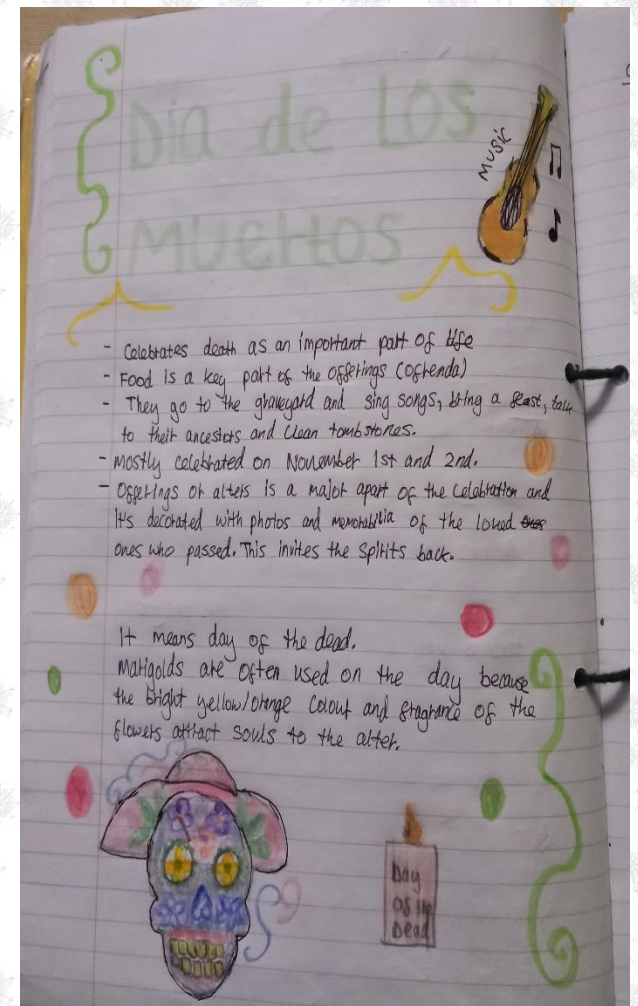 Dia de Los
Music
Muertos
- Celebrates death as an important part of life
- Food is a key part of the offerings (ofrenda)
- They go to the graveyard and sing songs, bring a feast, talk
to their ancestors and clean tombstones.
- Mostly celebrated on November 1st and 2nd.
- Offerings or alters is a major apart of the celebration and
it's decorated with photos and memorabilia of the loved
ones who passed. This invites the spirits back.
It means day of the dead.
Marigolds are often used on the day because
the bright yellow/orange colour and fragrance of the
flowers attract souls to the alter.
Day
of the
Dead